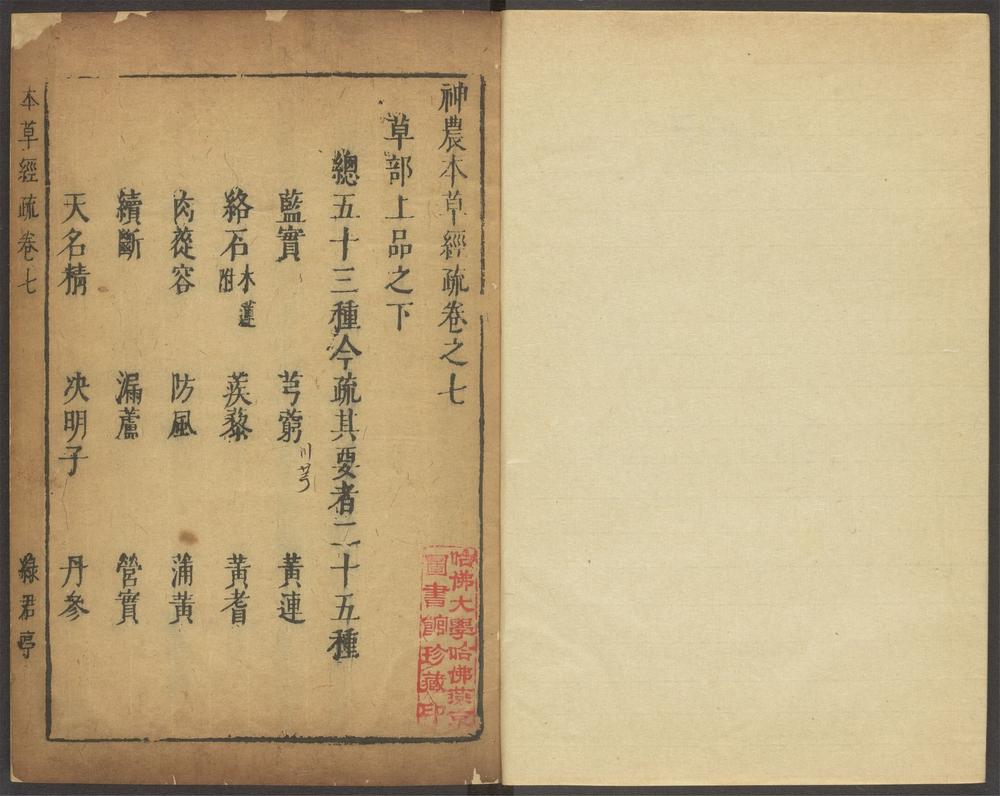 神農本草經疏卷之七
草部上品之下
總五十三種今疏其要者二十五種
藍實 芎藭 川芎 黃連
絡石 木蓮附 蒺藜 黃耆
肉蓯容 防風 蒲黃
續斷 漏蘆 營實
天名精 决明子 丹參
本草經疏卷七 綠君亭
哈佛大學哈佛燕京
圖書館珍藏印